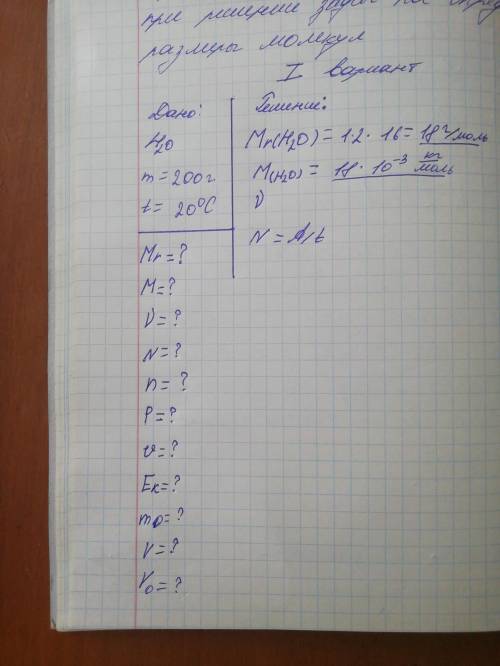 при решение задач на
размеры молекул
I вариант
Дано:
H₂O
m = 200г
t = 20⁰C
Mr = ?
M = ?
ν = ?
N = ?
n = ?
P = ?
v = ?
Eк = ?
m₀ = ?
V = ?
V₀ = ?
Решение:
Mr(H₂O) = 1·2· 16 = 18 г/моль
M(H₂O) = 18 · 10⁻³ кг/моль
ν
N = A/t